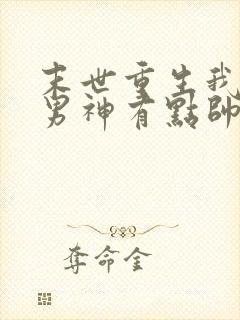 末世重生我
男神有點帥
奪命金